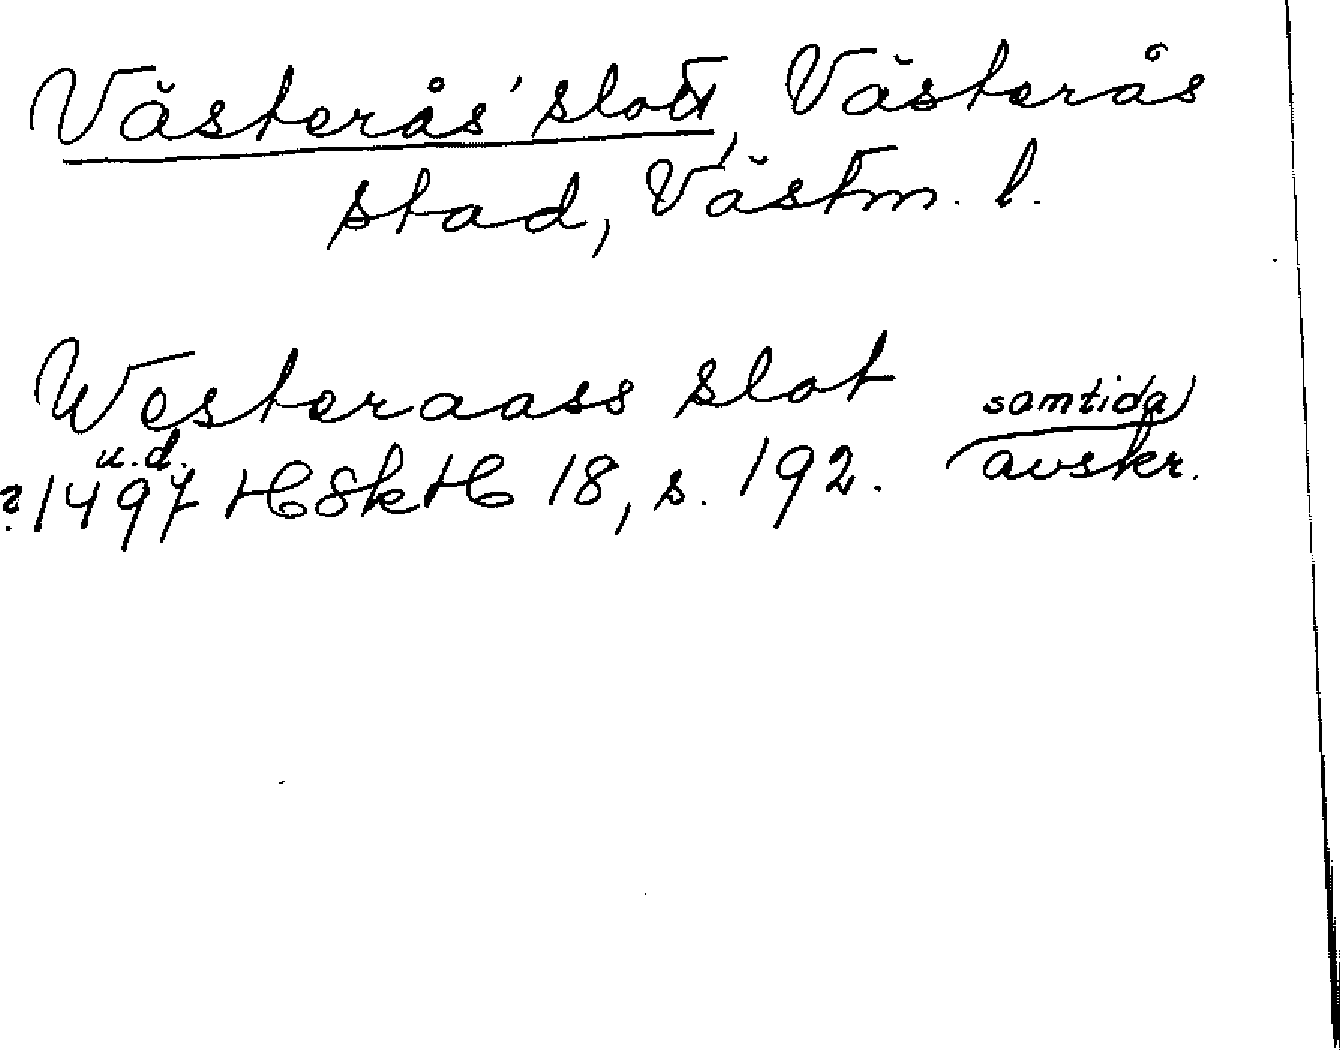 Västerås' slott, Västerås
stad, Västm. l.
Westeraass slot samtida
u.d.
?1497 HSkH 18, s. 192. avskr.